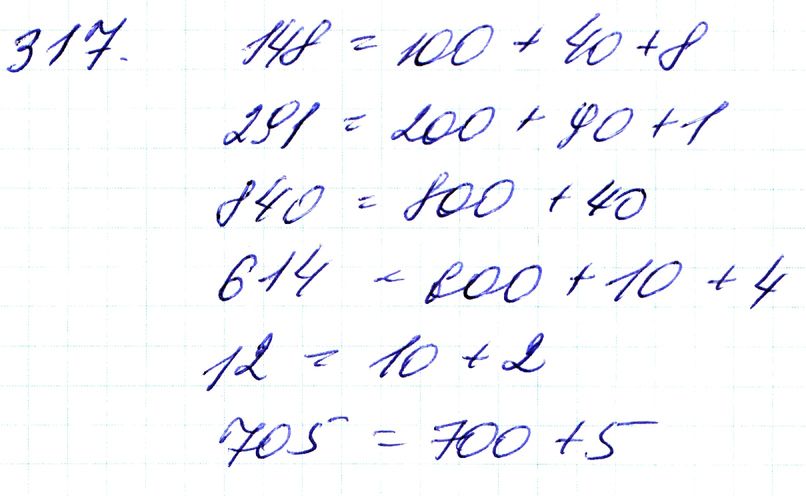 317. 148 = 100 + 40 + 8
291 = 200 + 90 + 1
840 = 800 + 40
614 = 600 + 10 + 4
12 = 10 + 2
705 = 700 + 5